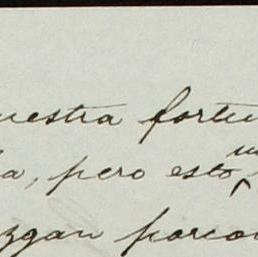 uestra fortu
a, pero esto
zgan parco